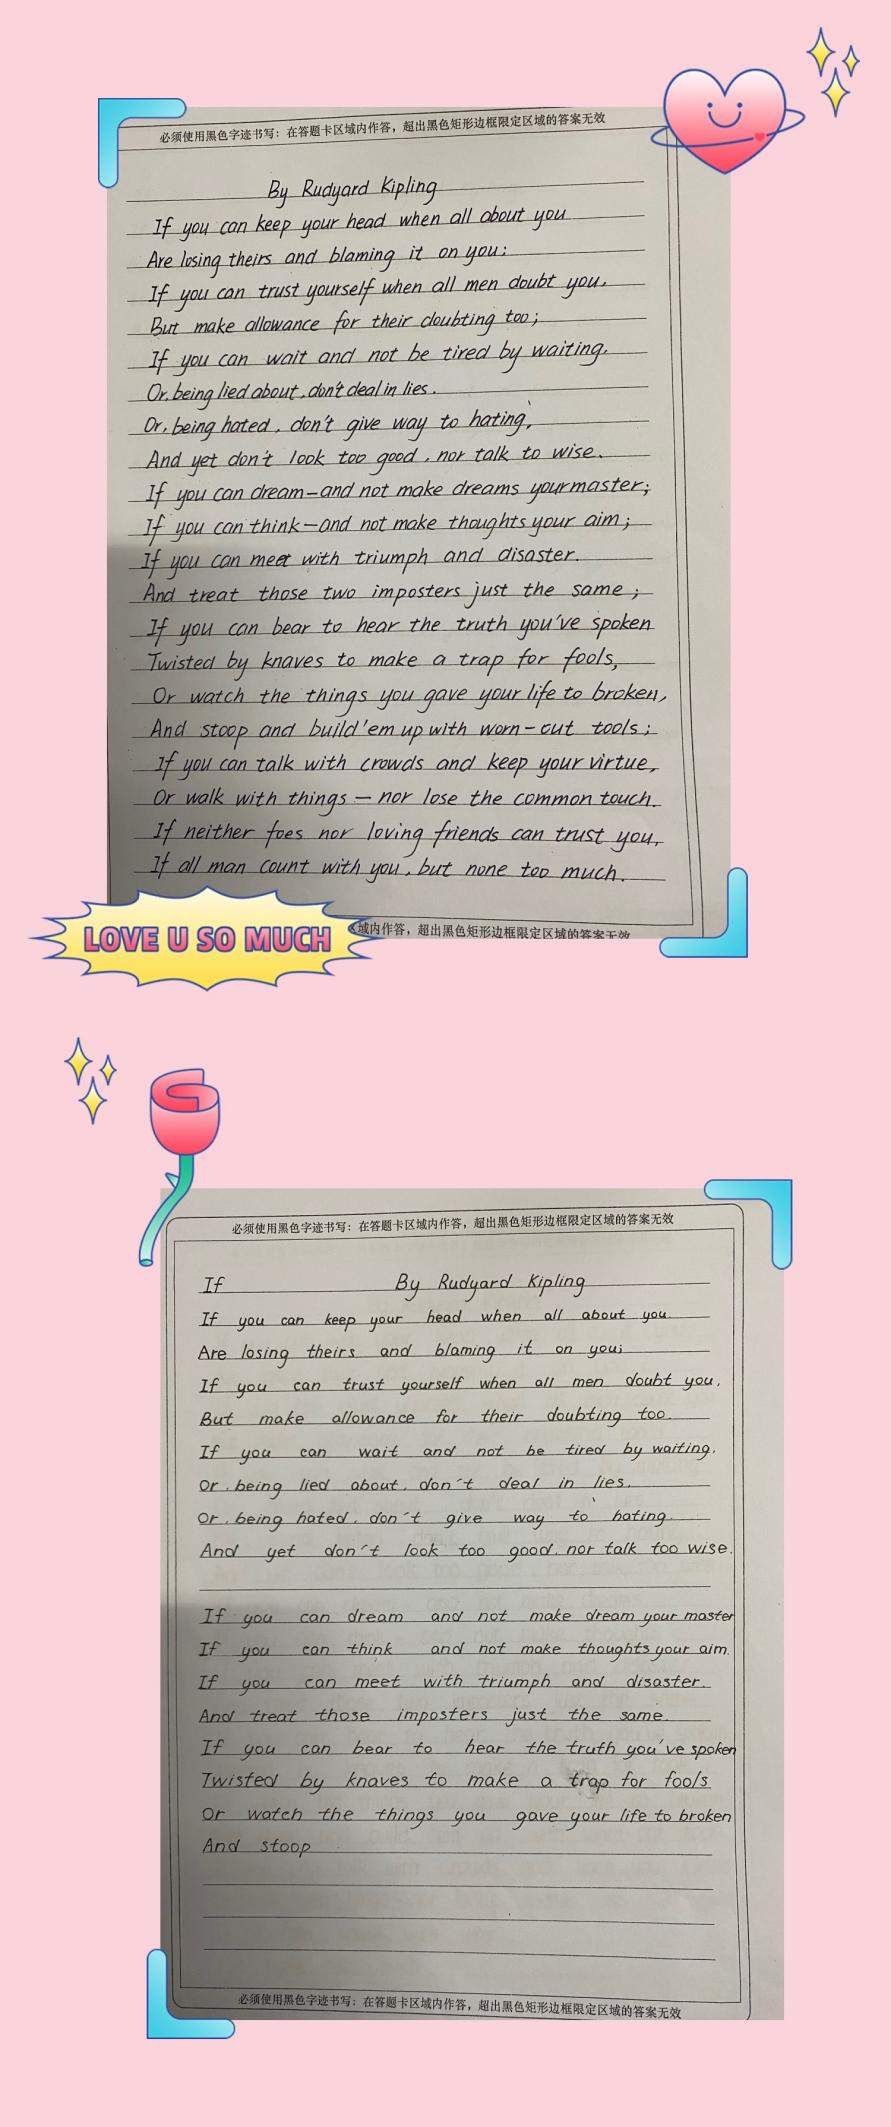 必须使用黑色字迹书写：在答题卡区域内作答，超出黑色矩形边框限定区域的答案无效
By Rudyard Kipling
If you can keep your head when all about you
Are losing theirs and blaming it on you;
If you can trust yourself when all men doubt you,
But make allowance for their doubting too;
If you can wait and not be tired by waiting.
Or, being lied about, don't deal in lies.
Or, being hated, don't give way to hating,
And yet don't look too good, nor talk to wise.
If you can dream—and not make dreams your master;
If you can think—and not make thoughts your aim;
If you can meet with triumph and disaster.
And treat those two imposters just the same;
If you can bear to hear the truth you've spoken
Twisted by knaves to make a trap for fools,
Or watch the things you gave your life to broken,
And stoop and build 'em up with worn-out tools;
If you can talk with crowds and keep your virtue,
Or walk with things — nor lose the common touch.
If neither foes nor loving friends can trust you,
If all man count with you, but none too much.
LOVE U SO MUCH
域内作答，超出黑色矩形边框限定区域的答案无效
必须使用黑色字迹书写：在答题卡区域内作答，超出黑色矩形边框限定区域的答案无效
If By Rudyard Kipling
If you can keep your head when all about you
Are losing theirs and blaming it on you;
If you can trust yourself when all men doubt you,
But make allowance for their doubting too.
If you can wait and not be tired by waiting.
Or. being lied about. don't deal in lies.
Or. being hated. don't give way to hating
And yet don't look too good. nor talk too wise.
If you can dream and not make dream your master
If you can think and not make thoughts your aim.
If you can meet with triumph and disaster.
And treat those imposters just the same.
If you can bear to hear the truth you've spoken
Twisted by knaves to make a trap for fools
Or watch the things you gave your life to broken
And stoop
必须使用黑色字迹书写：在答题卡区域内作答，超出黑色矩形边框限定区域的答案无效